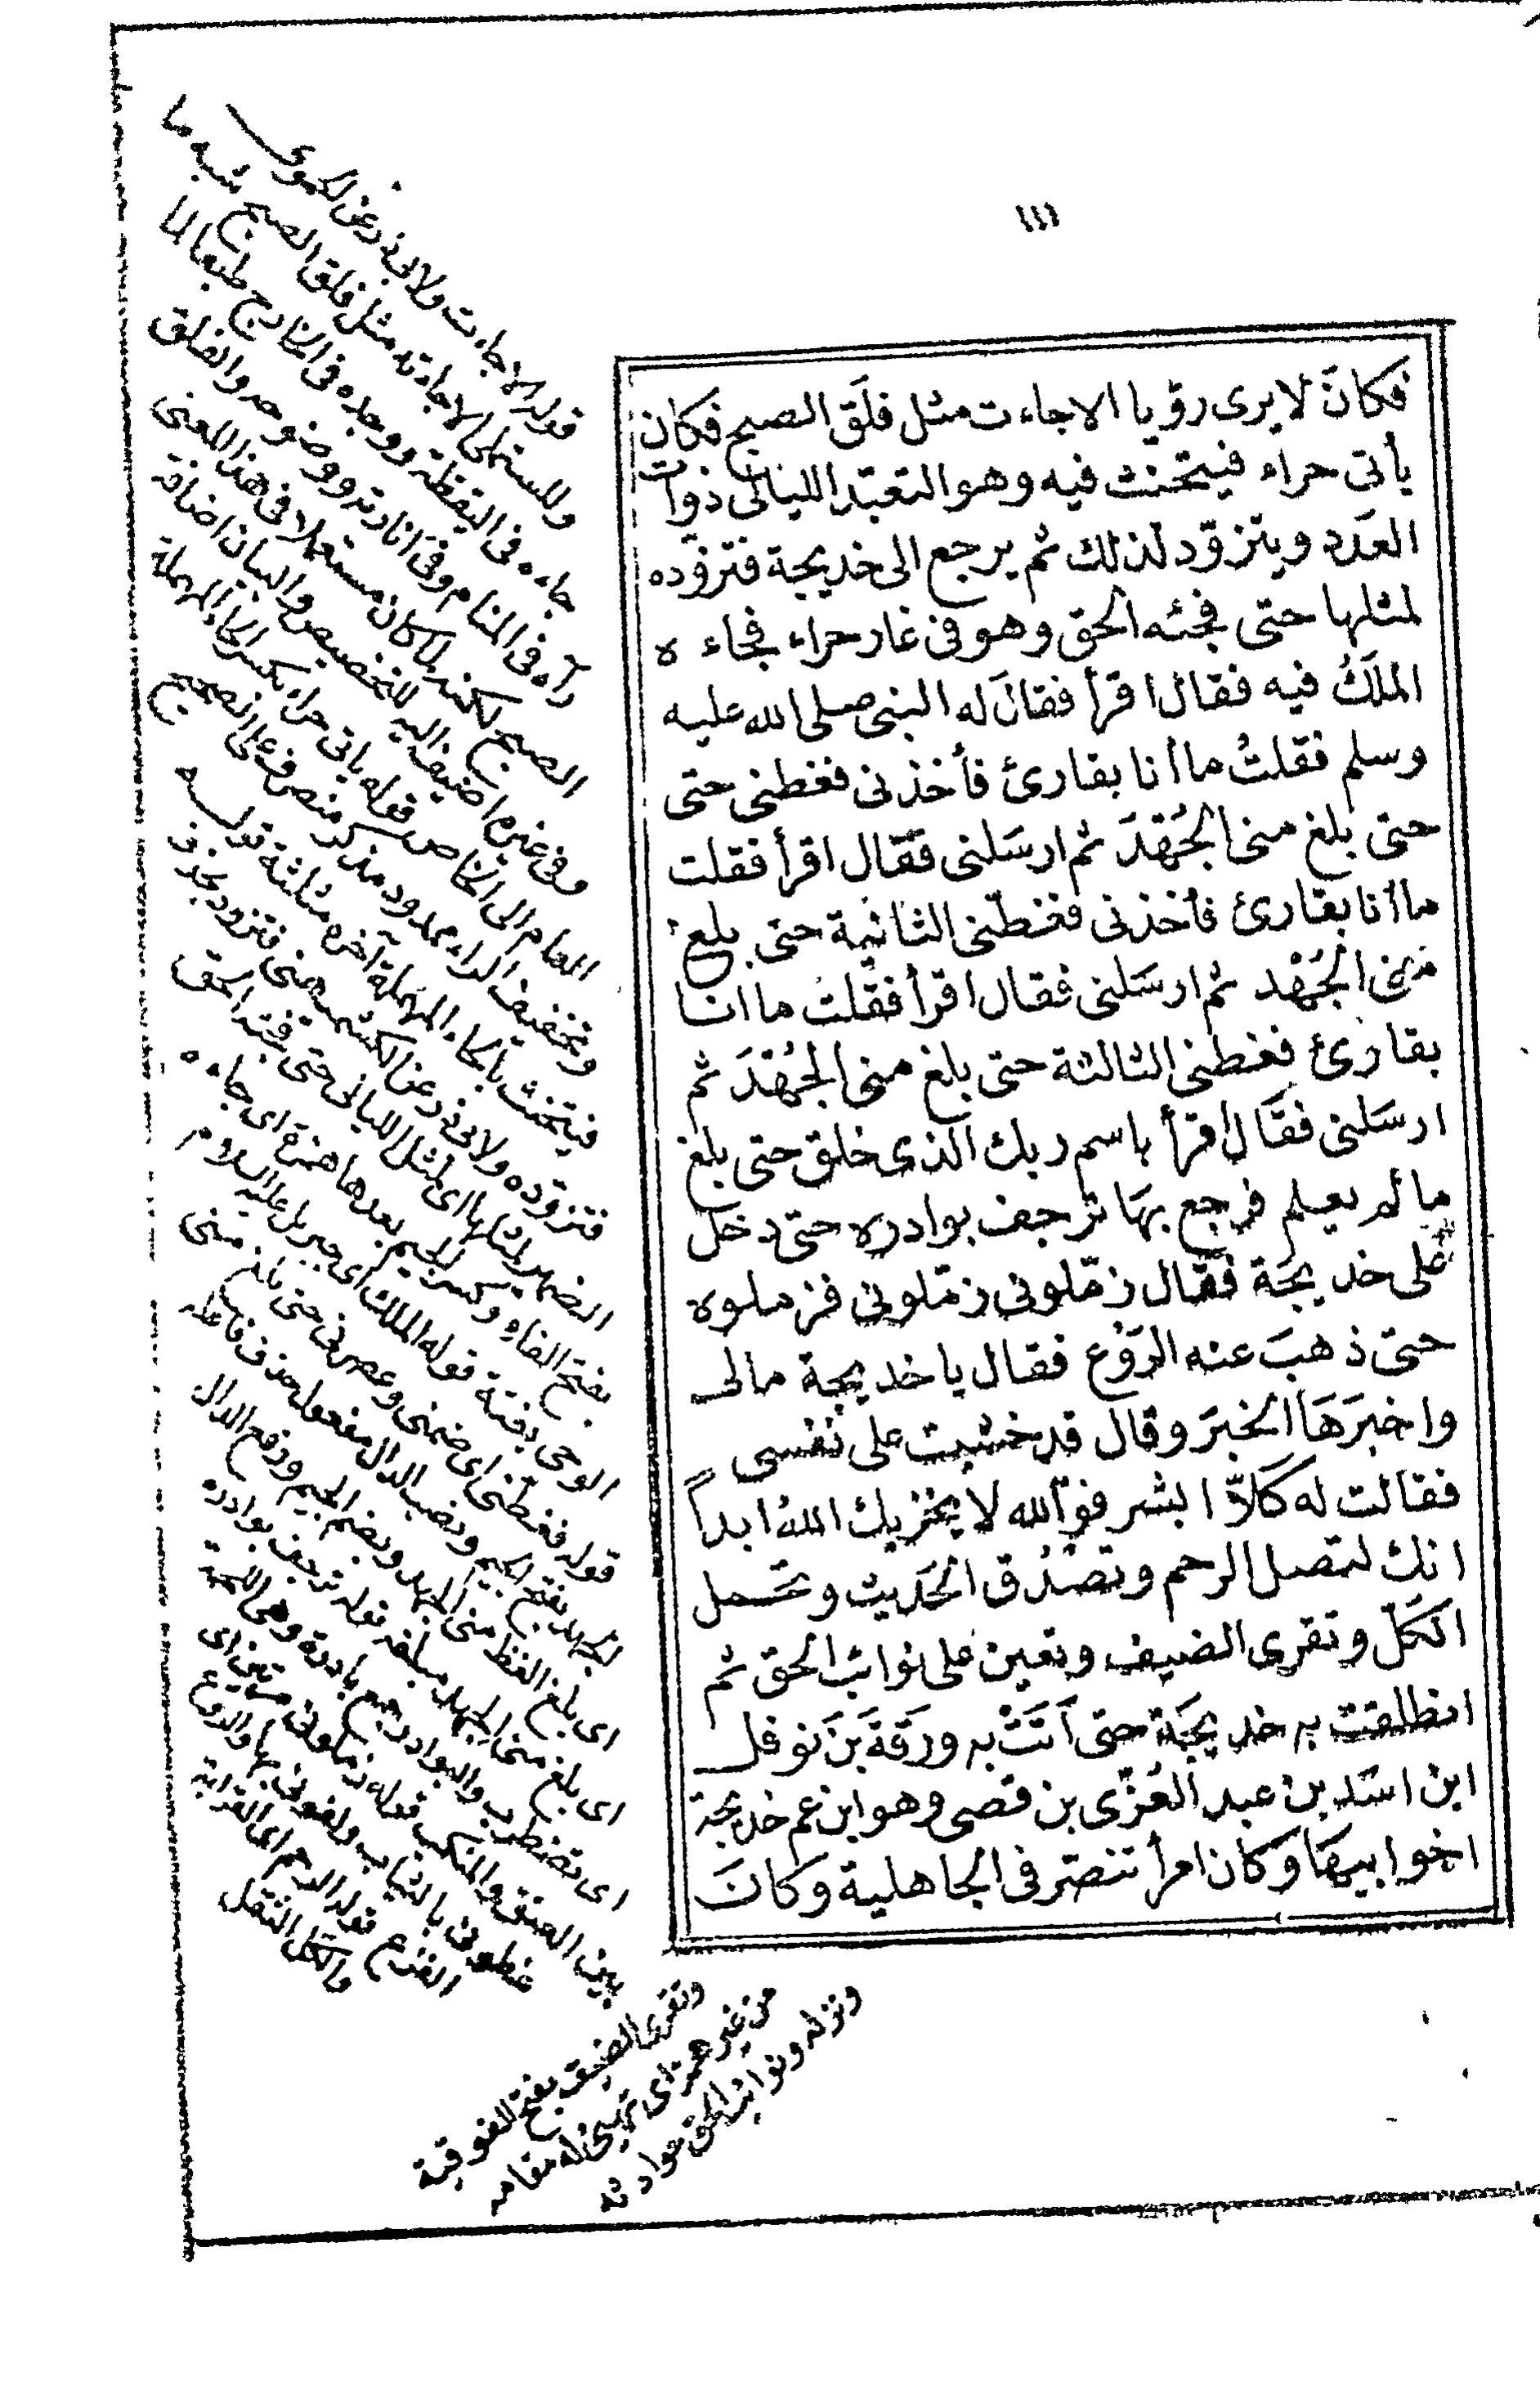 ١١١
فكانَ لا يرى رؤيا الا جاءت مثل فلَق الصبح فكان
يأتى حراء فيتحنث فيه وهو التعبّد الليالى ذوات
العدَد ويتزوّد لذلك ثم يرجع الى خديجة فتزوده
لمثلها حتى فجئه الحق وهو فى غار حراء فجاءه
الملَكُ فيه فقال اقرأ فقالَ له النبى صلى الله عليه
وسلم فقلتُ ما أنا بقارئ فأخذنى فغطنى حتى
حتى بلغ منى الجَهْدَ ثم ارسَلنى فقال اقرأ فقلت
ما أنا بقارئ فأخذنى فغطّنى الثانية حتى بلغ
منى الجَهْد ثم ارسَلنى فقال اقرأ فقلتُ ما انا
بقارئ فغطنى الثالثة حتى بلغ منى الجُهْدَ ثم
ارسَلنى فقَال اقرأ باسم ربك الذى خلق حتى بلغ
ما لم يعلم فرجع بهَا ترجف بوادره حتى دخل
على خديجَة فقَال زمّلونى زمّلونى فزملوه
حتى ذهبَ عنه الرَّوْع فقال يا خديجة مالى
واخبرَهَا الخبَر وقال قد خشيت على نفسى
فقالت له كَلاّ ابشر فوالله لا يخزيك اللهُ ابداً
انك لتصل الرحم وتصدُق الحَديث وتحمل
الكَلّ وتقرى الضيف وتعين على نوائب الحق ثم
انطلقت به خديجَة حتى أتَتْ به ورَقَةَ بنَ نوفل
ابن اسَد بن عبد العُزّى بن قصى وهو ابن عم خديجة
اخو ابيهَا وكان امرأ تنصّر فى الجاهلية وكانَ
قوله الا جاءت ولابى ذر عن الكشميهنى
وللمستملى الا جاءته مثل فلق الصبح شبه ما
جاءه فى اليقظة ووجده فى الخارج طبقا لما
رآه فى المنام وفى انارته ووضوحه والفلق
الصبح لكنه لما كان مستعملا فى هذا المعنى
وفى غيره اضيف اليه للتخصيص والبيان اضافة
العام الى الخاص قوله يأتى حراء بكسر الحاء المهملة
وتخفيف الراء ممدود مذكر منصرف على الصحيح
فيتحنث بالحاء المهملة آخره مثلثة قوله
فتزوده ولابى ذر عن الكشميهنى فتزود بحذف
الضمير لمثلها اى لمثل الليالى حتى فجئه الحق
بفتح الفاء وكسر الجيم بعدها همزة اى جاءه
الوحى بغتة قوله الملك اى جبريل عليه السلام
قوله فغطنى اى ضمنى وعصرنى حتى بلغ منى
الجهد بفتح الجيم ونصب الدال مفعول حذف فاعله
اى بلغ الغط منى الجهد وبضم الجيم ورفع الدال
اى بلغ منى الجهد مبلغه قوله ترجف بوادره
اى تضطرب والبوادر جمع بادرة وهى اللحمة
بين العنق والمنكب قوله زملونى مرتين اى
غطونى بالثياب ولفونى بها والروع
الفزع قوله الرحم اى القرابة
والكل الثقل
وتقرى الضيف بفتح الفوقية
من غير همز اى تهيئ له طعامه
ونزله ونوائب الحق حوادثه